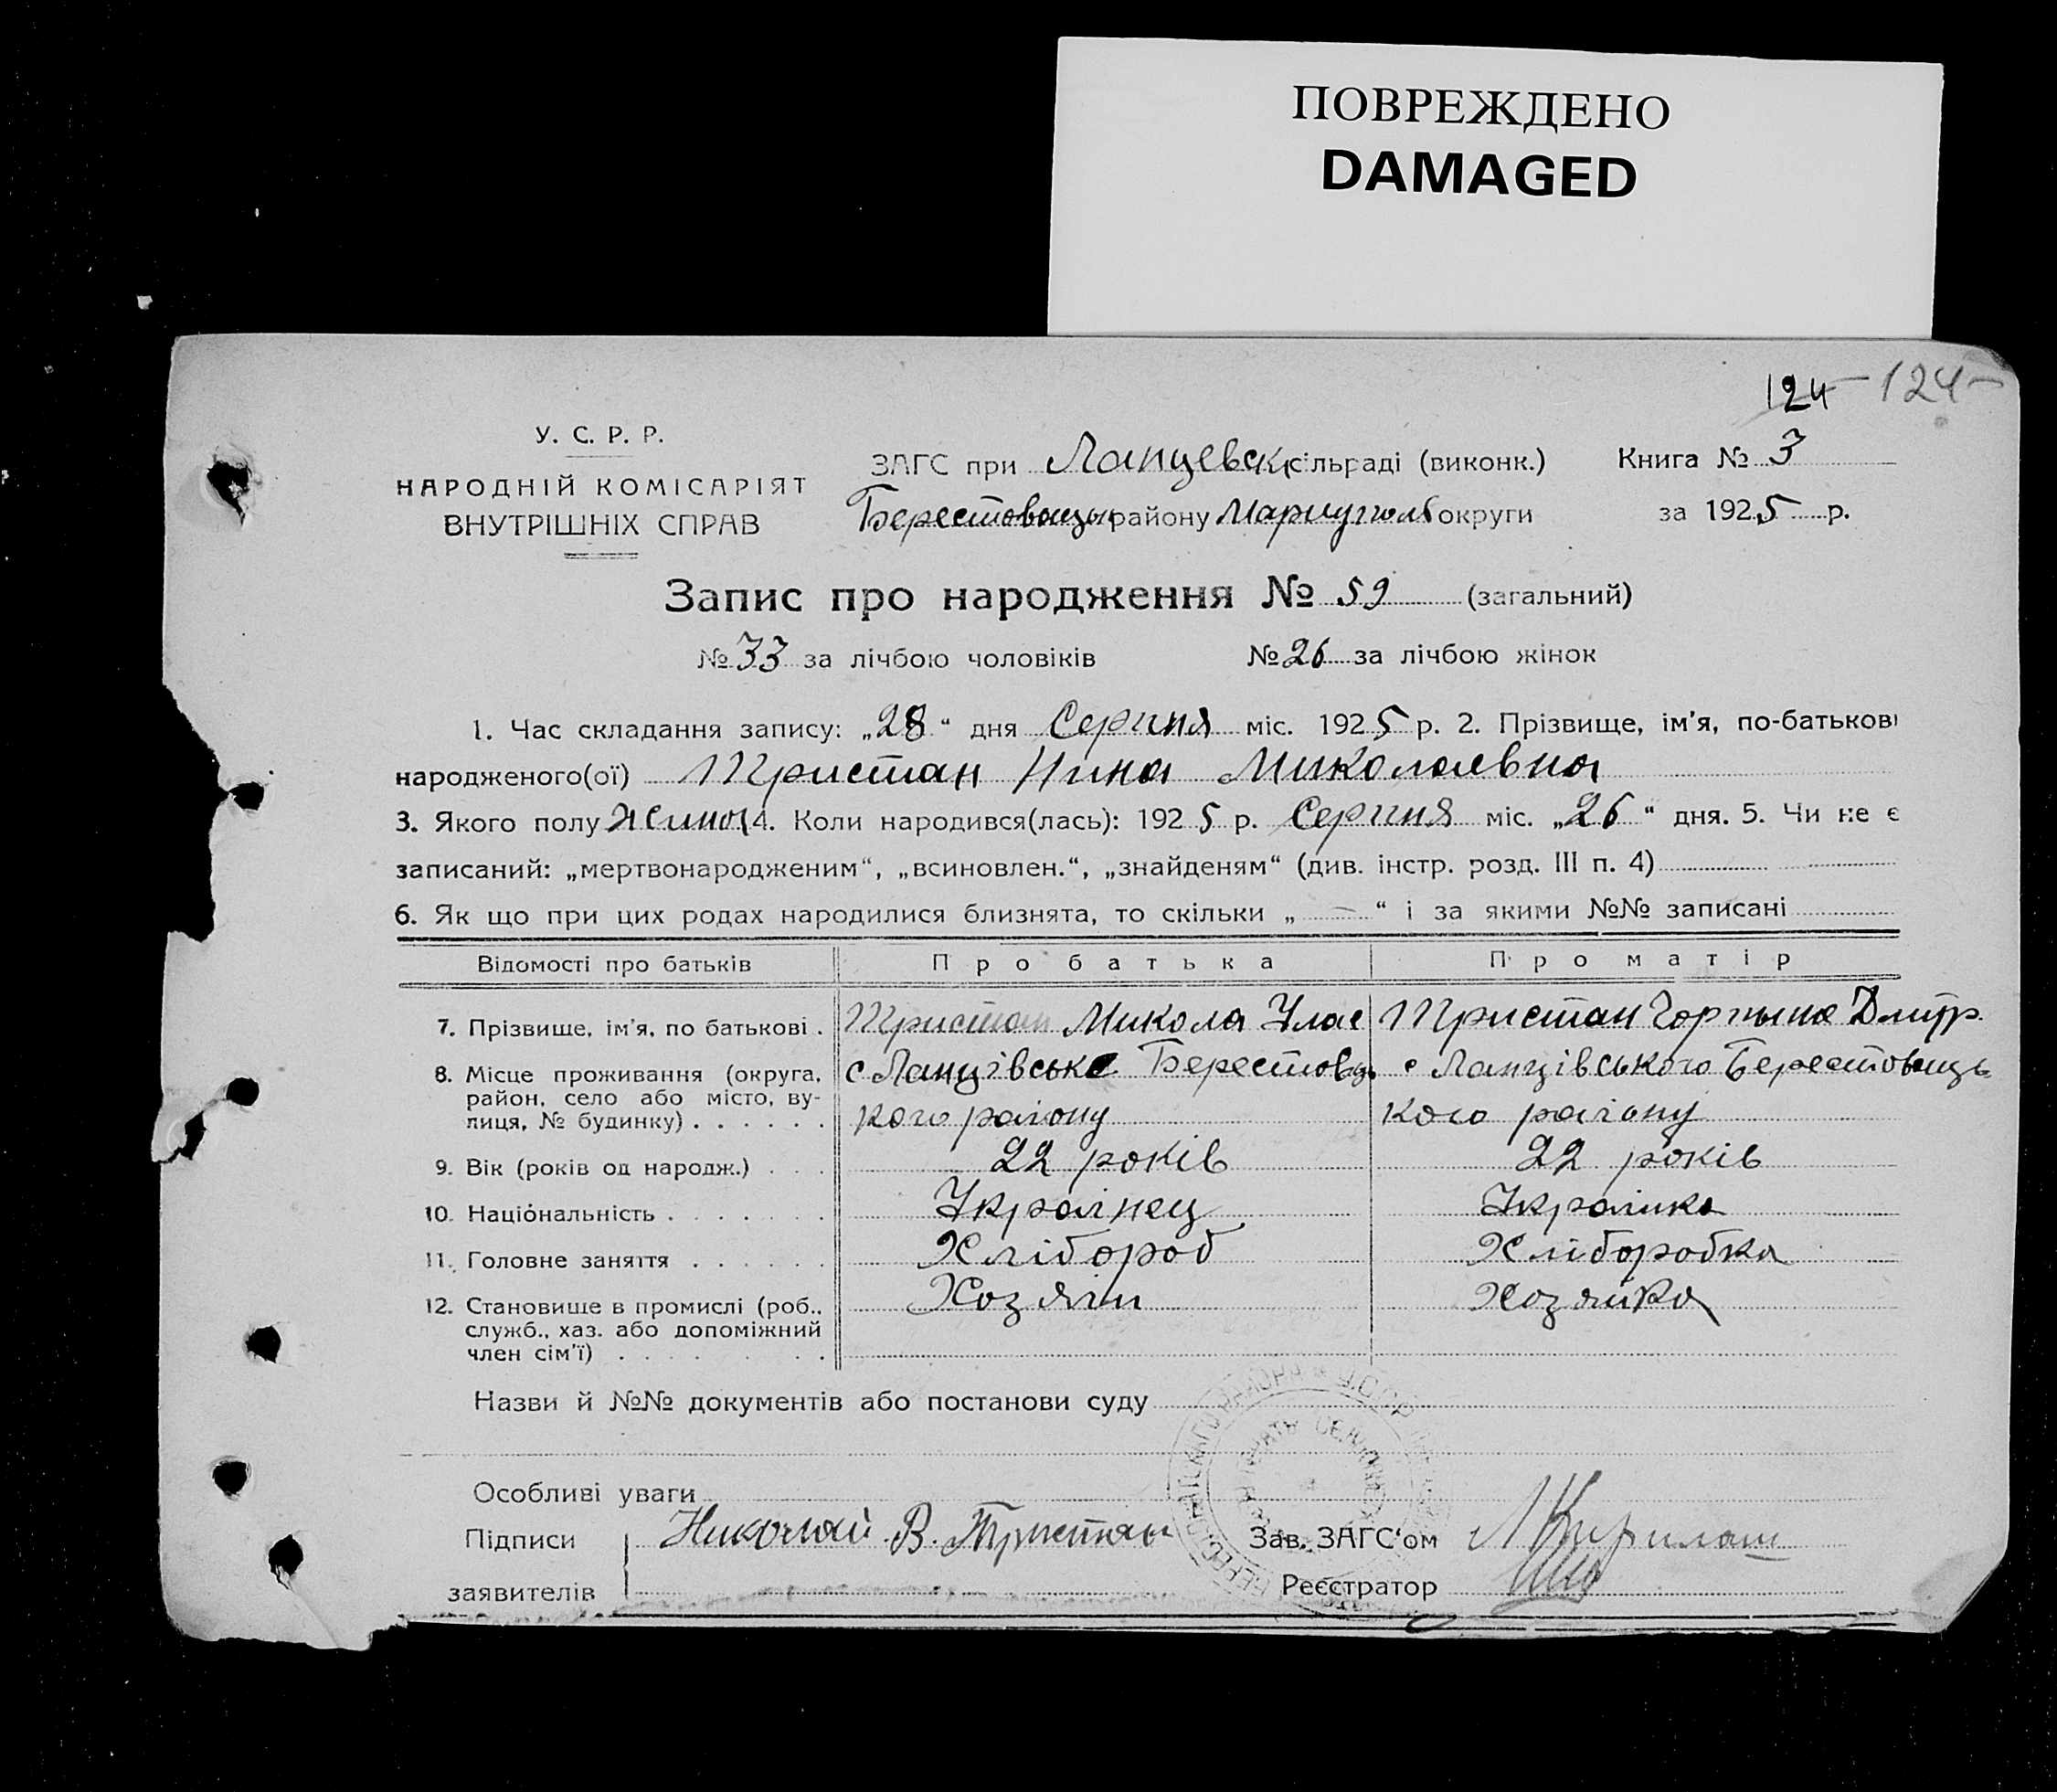 ПОВРЕЖДЕНО
DAMAGED
124 124
У. С. Р. Р.
НАРОДНІЙ КОМІСАРІЯТ
ВНУТРІШНІХ СПРАВ
ЗАГС при Ланцевск сільраді (виконк.) Книга № 3
Берестовецьк району Мариупольс округи за 1925 р.
Запис про народження № 59 (загальний)
№ 33 за лічбою чоловіків № 26 за лічбою жінок
1. Час складання запису: „28“ дня Серпня міс. 1925 р. 2. Прізвище, ім'я, по-батькові
народженого(ої) Тристан Нина Миколаевна
3. Якого полу жиноч 4. Коли народився(лась): 1925 р. Серпня міс. „26“ дня. 5. Чи не є
записаний: „мертвонародженим“, „всиновлен.“, „знайденям“ (див. інстр. розд. III п. 4)
6. Як що при цих родах народилися близнята, то скільки „ — “ і за якими №№ записані
Відомості про батьків Про батька Про матір
7. Прізвище, ім'я, по батькові . Тристан Микола Улас Тристан Горпына Дмитр.
8. Місце проживання (округа, район, село або місто, вулиця, № будинку) . . . . . . с Ланцівське Берестовец с Ланцівського Берестовець
кого району кого району
9. Вік (років од народж.) . . . 22 років 22 років
10. Національність . . . . . . . Українец Украінка
11. Головне заняття . . . . . . Хлібороб Хліборобка
12. Становище в промислі (роб., служб., хаз. або допоміжний член сім'ї) . . . . . . . Хозяін Хозяйка
Назви й №№ документів або постанови суду
Особливі уваги
Підписи Николай В. Тристан Зав. ЗАГС'ом
заявителів Реєстратор